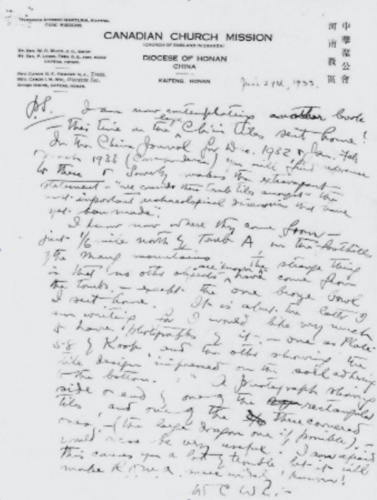 CANADIAN CHURCH MISSION
(CHURCH OF ENGLAND IN CANADA)
DIOCESE OF HONAN
CHINA
KAIFENG, HONAN
中華聖公會
河南教區
1933.
P.S. I am now contemplating another book
this time on the Ch'in tiles sent home!
In the China Journal for Dec. 1932 & Jan. Feb
March 1933 you will find reference
to them & Sowerby makes the extravagant
statement - "we consider these tomb tiles amongst the
most important archaeological discoveries that have
yet been made."
I know now where they come from -
just 1/2 mile north of Tomb A on the foothills
of the Mang mountains the strange thing
is that no other objects have come from
the tombs - except the one bronze bowl
I sent home. It is about the latter I
am writing for I would like very much
to have photographs of it - one as Plate
58 of Koop and two others showing the
tile design impressed on the soil adhering
to the bottom. A photograph showing
side or end of one of the rectangular
tiles, and one of the three cornered
ones, (the large dragon one if possible) -
would also be very useful. I am afraid
this causes you a lot of trouble but it will
make R.O.M.A. more widely known!
W C W